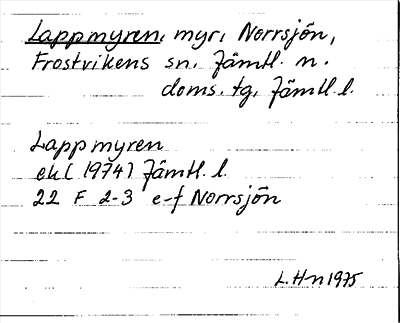 Lappmyren, myr, Norrsjön,
Frostvikens sn. Jämtl. n.
doms. tg, Jämtl. l.
Lappmyren
ek (1974) Jämtl. l.
22 F 2-3 e-f Norrsjön
L. H-n 1975